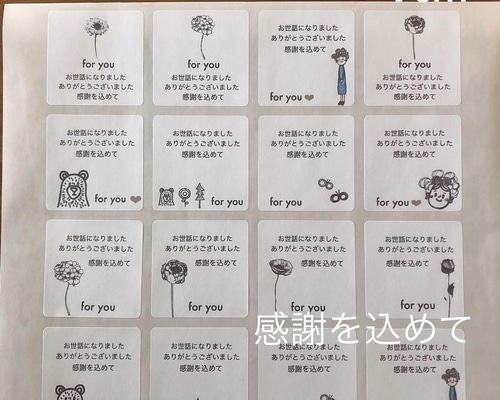 for you
お世話になりました
ありがとうございました
感謝を込めて
for you
お世話になりました
ありがとうございました
感謝を込めて
お世話になりました
ありがとうございました
感謝を込めて
for you
for you
お世話になりました
ありがとうございました
感謝を込めて
お世話になりました
ありがとうございました
感謝を込めて
for you
お世話になりました
ありがとうございました
感謝を込めて
for you
お世話になりました
ありがとうございました
感謝を込めて
for you
お世話になりました
ありがとうございました
感謝を込めて
for you
お世話になりました
ありがとうございました
感謝を込めて
for you
お世話になりました
ありがとうございました
感謝を込めて
for you
お世話になりました
ありがとうございました
感謝を込めて
for you
お世話になりました
ありがとうございました
感謝を込めて
for you
感謝を込めて
お世話になりました
ありがとうございました
感謝を込めて
お世話になりました
ありがとうございました
感謝を込めて
お世話になりました
ありがとうございました
感謝を込めて
お世話になりました
ありがとうございました
感謝を込めて